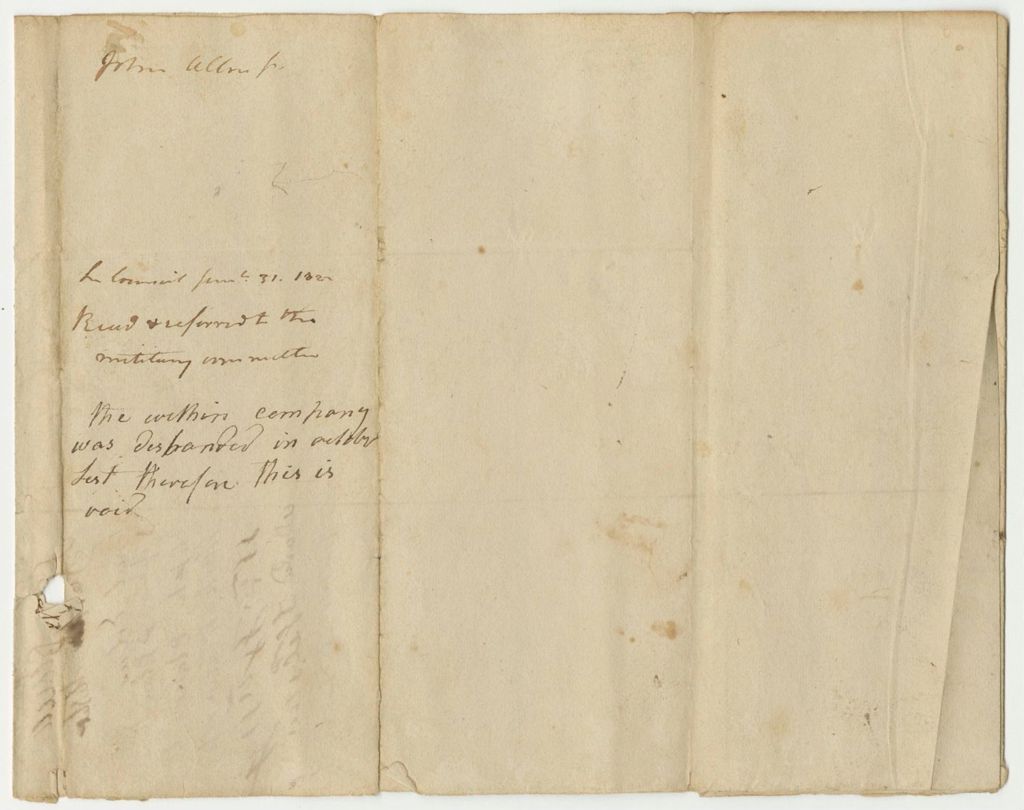 John Allen Jr.
In Council Jany. 31. 1822
Read & referred to the
military committee
the within company
was disbanded in octobr
last therefore this is
void